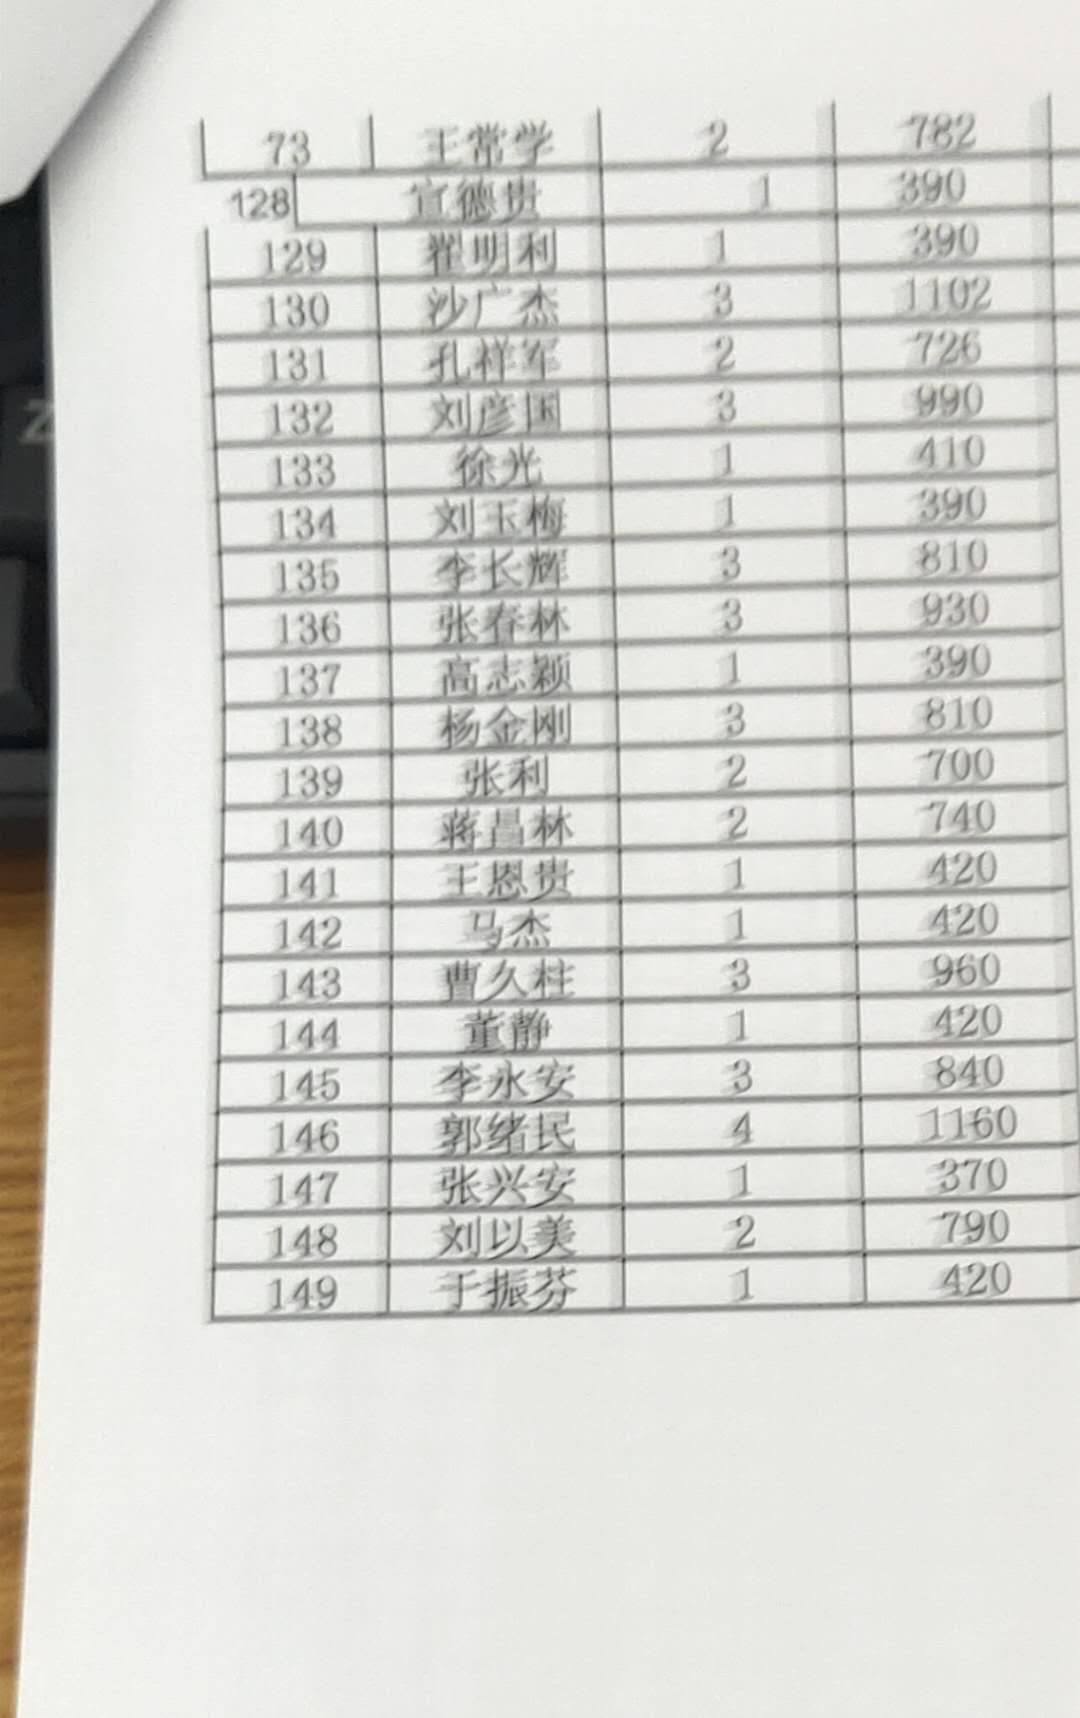 73 王常学 2 782
128 宣德贵 1 390
129 翟明利 1 390
130 沙广杰 3 1102
131 孔祥军 2 726
132 刘彦国 3 990
133 徐光 1 410
134 刘玉梅 1 390
135 李长辉 3 810
136 张春林 3 930
137 高志颖 1 390
138 杨金刚 3 810
139 张利 2 700
140 蒋昌林 2 740
141 王恩贵 1 420
142 马杰 1 420
143 曹久柱 3 960
144 董静 1 420
145 李永安 3 840
146 郭绪民 4 1160
147 张兴安 1 370
148 刘以美 2 790
149 于振芬 1 420
Z